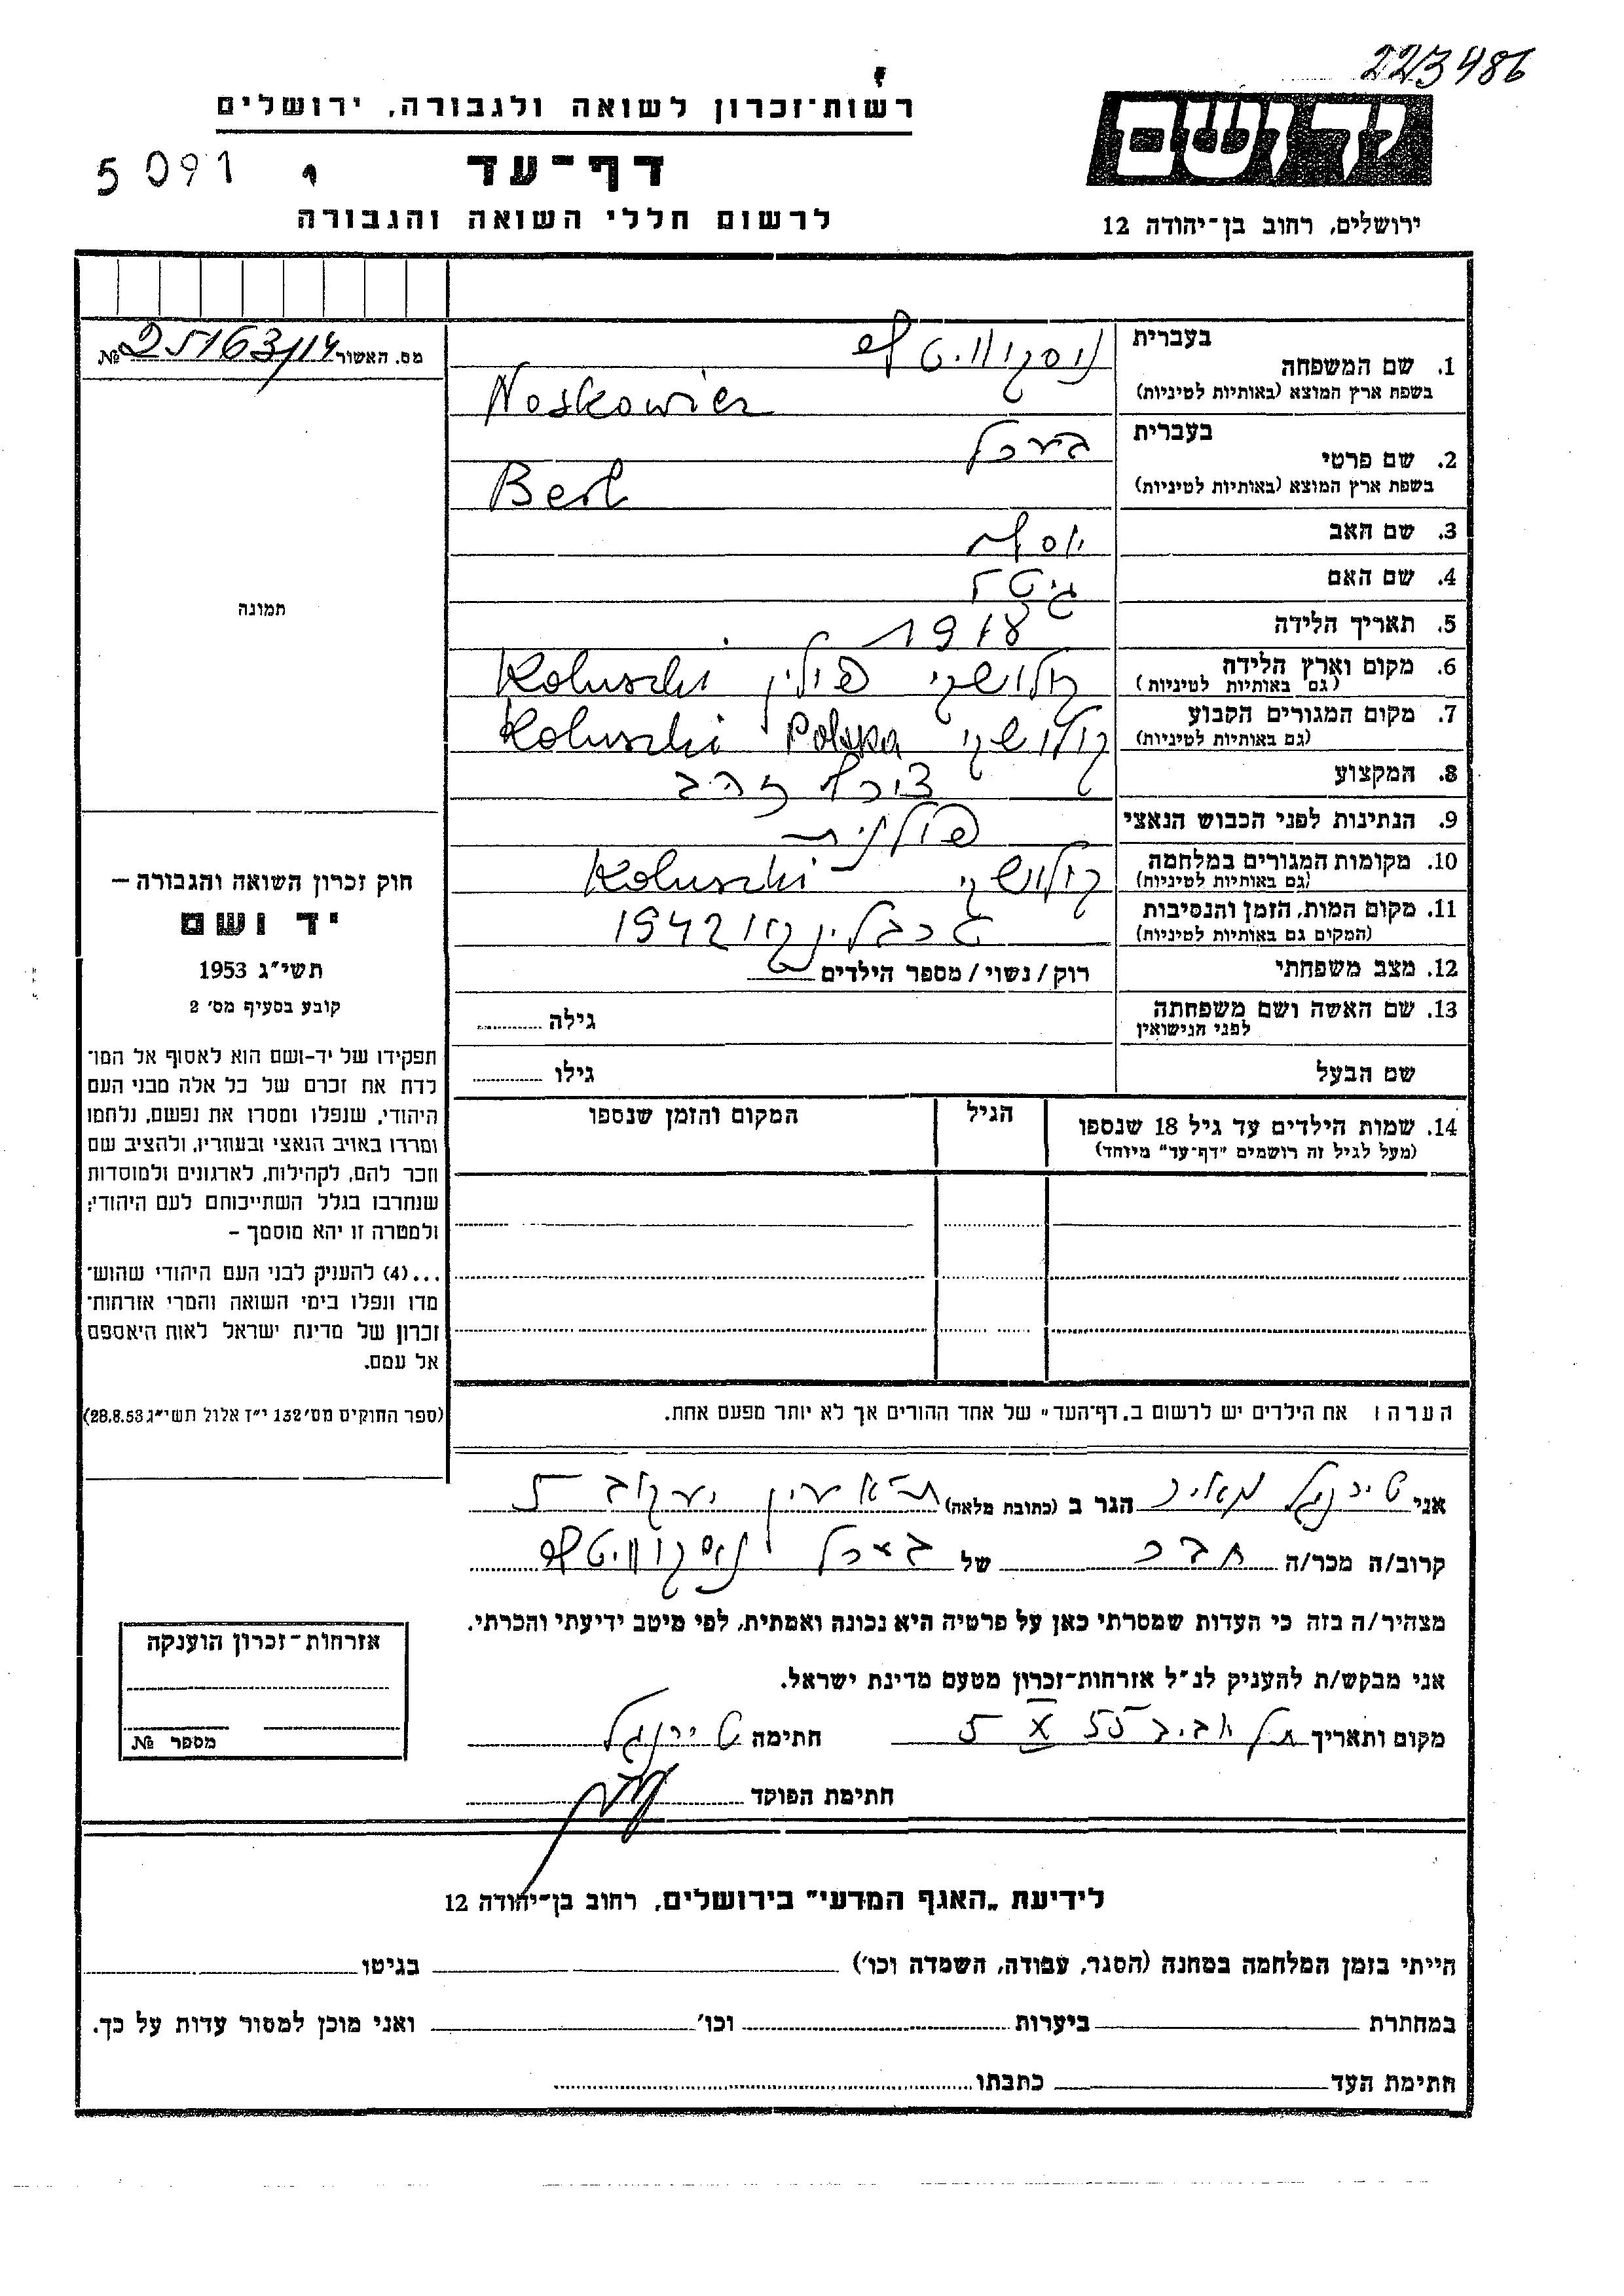 223486
רשות־זכרון לשואה ולגבורה, ירושלים
ידושם
דף־עד
5091
לרשום חללי השואה והגבורה
ירושלים, רחוב בן־יהודה 12
מס. האשור № 25163/114
בעברית
1. שם המשפחה
בשפת ארץ המוצא (באותיות לטיניות)
נוסקוויטש
Noskowicz
בעברית
2. שם פרטי
בשפת ארץ המוצא (באותיות לטיניות)
בערל
Berl
3. שם האב יוסף
4. שם האם גיטל
5. תאריך הלידה 1918
6. מקום וארץ הלידה קולושקי פולין Koluszki
(גם באותיות לטיניות)
7. מקום המגורים הקבוע קולושקי Polska Koluszki
(גם באותיות לטיניות)
8. המקצוע צורף זהב
9. הנתינות לפני הכבוש הנאצי פולנית
10. מקומות המגורים במלחמה קולושקי Koluszki
(גם באותיות לטיניות)
11. מקום המות, הזמן והנסיבות טרבלינקו 1942
(המקום גם באותיות לטיניות)
12. מצב משפחתי רוק / נשוי / מספר הילדים
13. שם האשה ושם משפחתה גילה
לפני הנישואין
שם הבעל גילו
14. שמות הילדים עד גיל 18 שנספו הגיל המקום והזמן שנספו
(מעל לגיל זה רושמים "דף־עד" מיוחד)
הערה: את הילדים יש לרשום ב„דף־העד" של אחד ההורים אך לא יותר מפעם אחת.
תמונה
חוק זכרון השואה והגבורה –
יד ושם
תשי"ג 1953
קובע בסעיף מס' 2
תפקידו של יד-ושם הוא לאסוף אל המו־
לדת את זכרם של כל אלה מבני העם
היהודי, שנפלו ומסרו את נפשם, נלחמו
ומרדו באויב הנאצי ובעוזריו, ולהציב שם
וזכר להם, לקהילות, לארגונים ולמוסדות
שנחרבו בגלל השתייכותם לעם היהודי;
ולמטרה זו יהא מוסמך –
...(4) להעניק לבני העם היהודי שהוש־
מדו ונפלו בימי השואה והמרי אזרחות־
זכרון של מדינת ישראל לאות היאספם
אל עמם.
(ספר החוקים מס' 132 י"ז אלול תשי"ג 28.8.53)
אני הגר ב (כתובת מלאה) ת"א עין יעקב 5
קרוב/ה מכר/ה חבר של בערל נוסקוויטש
מצהיר/ה בזה כי העדות שמסרתי כאן על פרטיה היא נכונה ואמתית, לפי מיטב ידיעתי והכרתי.
אני מבקש/ת להעניק לנ"ל אזרחות־זכרון מטעם מדינת ישראל.
מקום ותאריך תל אביב 55 X 5 חתימה
חתימת הפוקד
אזרחות־זכרון הוענקה
מספר №
לידיעת „האגף המדעי" בירושלים, רחוב בן־יהודה 12
הייתי בזמן המלחמה במחנה (הסגר, עבודה, השמדה וכו') בגיטו
במחתרת ביערות וכו' ואני מוכן למסור עדות על כך.
חתימת העד כתבתו